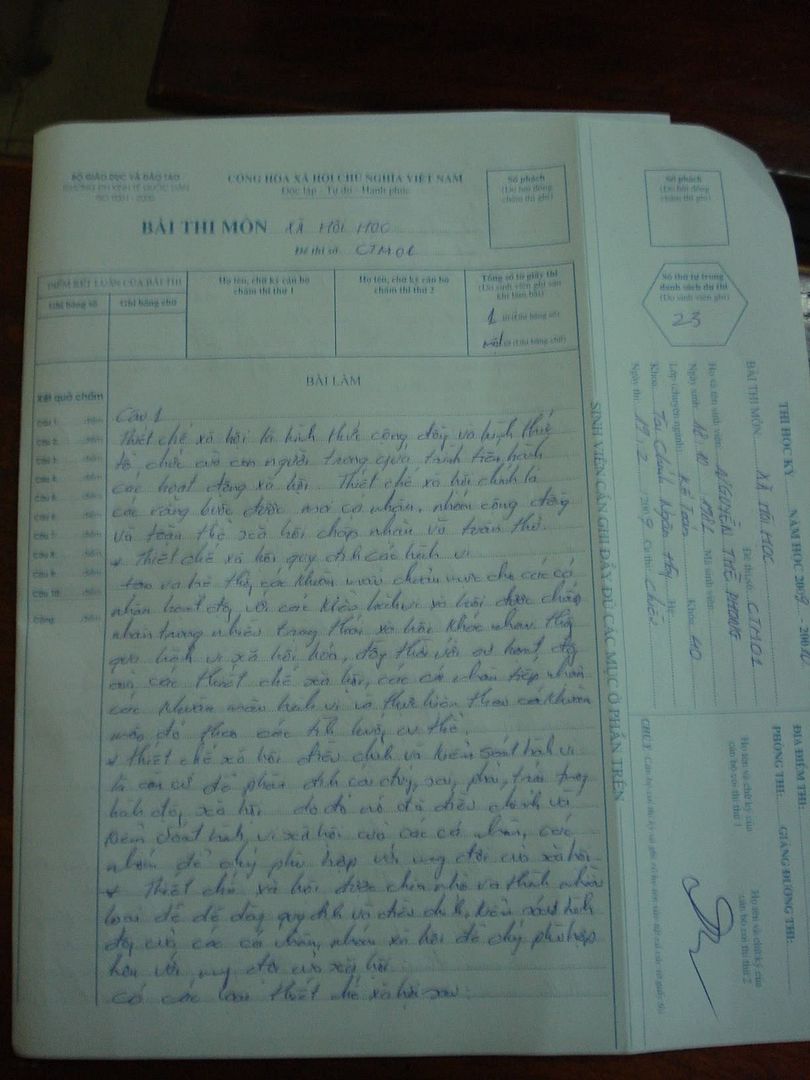 BỘ GIÁO DỤC VÀ ĐÀO TẠO
TRƯỜNG ĐH KINH TẾ QUỐC DÂN
ISO 9001 - 2000
CỘNG HÒA XÃ HỘI CHỦ NGHĨA VIỆT NAM
Độc lập - Tự do - Hạnh phúc
BÀI THI MÔN XÃ HỘI HỌC
Đề thi số:
Số phách
(Do hội đồng
chấm thi ghi)
ĐIỂM KẾT LUẬN CỦA BÀI THI
Ghi bằng số Ghi bằng chữ
Họ tên, chữ ký cán bộ
chấm thi thứ 1
Họ tên, chữ ký cán bộ
chấm thi thứ 2
Tổng số tờ giấy thi
(Do sinh viên ghi sau
khi làm bài)
1 tờ (Ghi bằng số)
một tờ (Ghi bằng chữ)
Kết quả chấm
Câu 1: điểm
Câu 2: điểm
Câu 3: điểm
Câu 4: điểm
Câu 5: điểm
Câu 6: điểm
Câu 7: điểm
Câu 8: điểm
Câu 9: điểm
Câu 10: điểm
Cộng: điểm
BÀI LÀM
Câu 1
Thiết chế xã hội là hình thức cộng đồng và hình thức
tổ chức của con người trong quá trình tiến hành
các hoạt động xã hội. Thiết chế xã hội chính là
các ràng buộc được mọi cá nhân, nhóm cộng đồng
và toàn thể xã hội chấp nhận và tuân thủ.
* Thiết chế xã hội quy định các hành vi
các khuôn mẫu chuẩn mực cho các cá
nhân hoạt độ, với các kiểu hành vi xã hội được chấp
nhận xã hội khác nhau thông
qua hành vi xã hội hóa, đồng thời với sự hoạt độ
của các thiết chế xã hội, các cá nhân tiếp nhận
các khuôn mẫu hành vi và thực hiện theo các khuôn
mẫu đó theo các cụ thể.
* Thiết chế xã hội điều chỉnh và kiểm soát hành vi
là căn cứ để phân định cái đúng, sai, phải, trái trong
hành độ, xã hội do đó nó đã điều chỉnh và
kiểm soát hành vi xã hội của các cá nhân, các
nhóm để phù hợp với của xã hội
* Thiết chế xã hội được chia nhỏ và thành nhiều
loại để dễ dàng quy định và điều chỉnh, kiểm soát hành
động của các cá nhân, nhóm xã hội để phù hợp
hơn với của xã hội.
Có các loại thiết chế xã hội sau:
SINH VIÊN CẦN GHI ĐẦY ĐỦ CÁC MỤC Ở PHẦN TRÊN
Số phách
(Do hội đồng
chấm thi ghi)
Số thứ tự trong
danh sách dự thi
(Do sinh viên ghi)
23
THI HỌC KỲ NĂM HỌC
BÀI THI MÔN: XÃ HỘI HỌC Đề thi số: CTH01
Họ và tên sinh viên: NGUYỄN THẾ PHONG
Ngày sinh: 18. 10 Mã sinh viên:
Lớp (chuyên ngành): Kế Toán Khóa 40
Khoa: Tài Chính Ngân Hàng Hệ:
Ngày thi: 19. 2. 2009 Ca thi: Chiều
ĐỊA ĐIỂM THI:
PHÒNG THI: GIẢNG ĐƯỜNG THI:
Họ tên và chữ ký của
cán bộ coi thi thứ 1
Họ tên và chữ ký của
cán bộ coi thi thứ 2